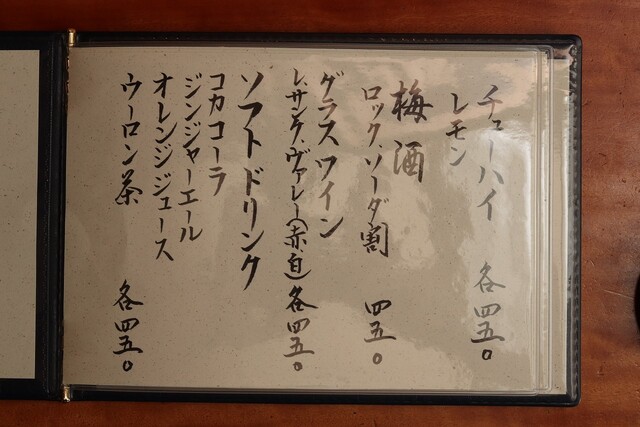 チューハイ 各四五〇
レモン
梅酒
ロック、ソーダ割 四五〇
グラスワイン
レ、サンク、ヴァレー(赤・白)各四五〇
ソフトドリンク
コカコーラ
ジンジャーエール
オレンジジュース
ウーロン茶 各四五〇